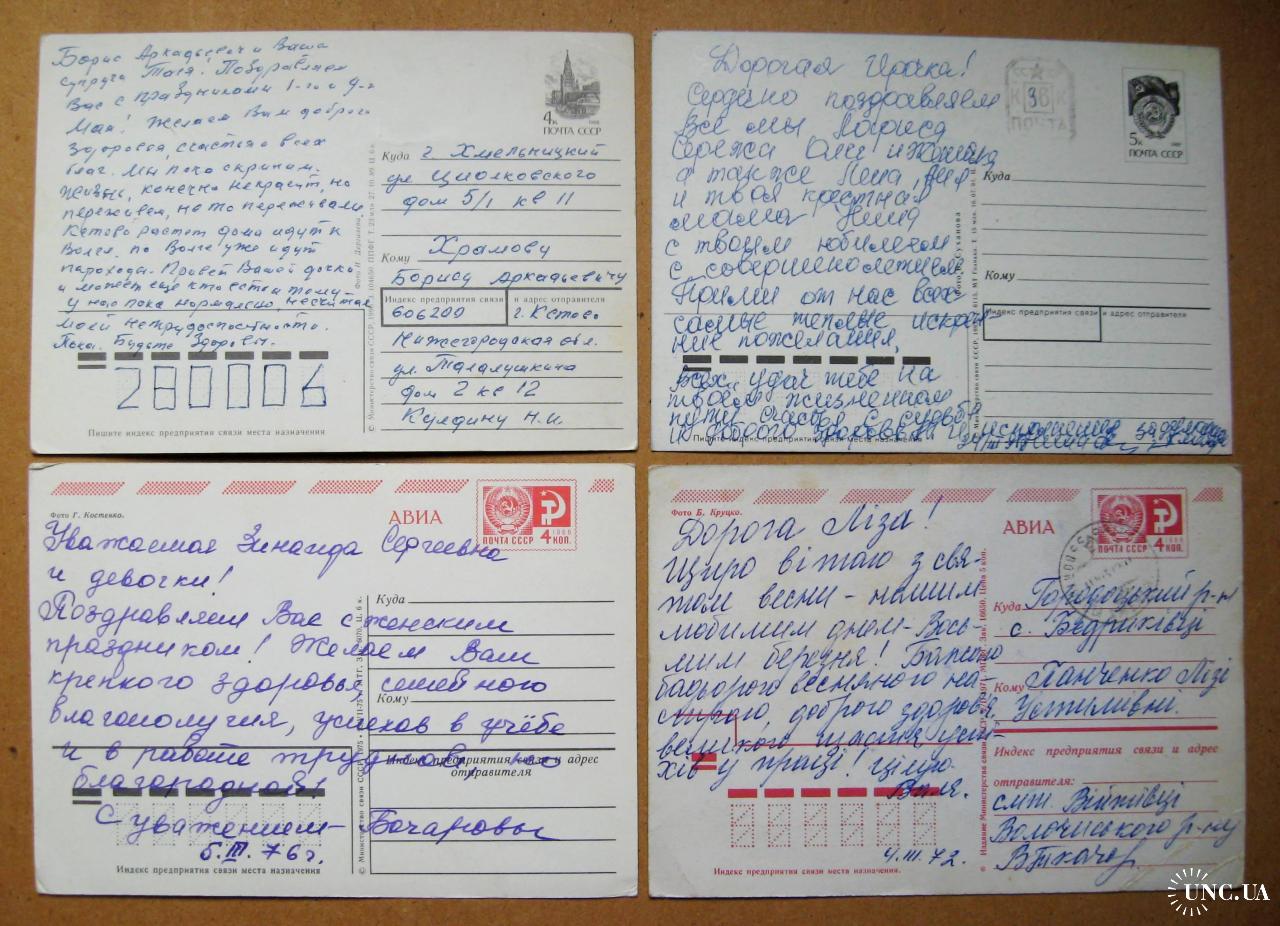 Борис Аркадьевич и Ваша
супруга Тася! Поздравляем
Вас с праздниками 1-го и 9-го
Мая! Желаем Вам доброго
здоровья, счастья во всех
благ. Мы пока скрипим,
жизнь, конечно не красит, но
переживем, не то переживали
Кстово растет дома идут к
Волге, по Волге уже идут
пароходы. Привет Вашей дочки
и может еще кто есть к тому-
у нас пока нормально, несчитая
моей нетрудоспостность.
Пока. Будьте здоровы.
280006
Пишите индекс предприятия связи места назначения
4к 1988
ПОЧТА СССР
Куда г. Хмельницкий
ул Циолковского
дом 5/1 кв 11
Храмову
Кому
Борису Аркадьевичу
Индекс предприятия связи и адрес отправителя
606200 г. Кстово
Нижегородская обл.
ул. Талалушкина
дом 2 кв 12
Кулдину Н.И.
Дорогая Ирочка!
Сердечно поздравляем
Все мы Лариса
Сережа Оля и
а также Лена,
и твоя крестная
мама Нина
с твоим юбилеем
с совершенолетием
Прими от нас всех
самые теплые искрен-
ние пожелания,
Всех удач тебе на
твоем жизненном
пути счастья в судьбе
доброго здоровья и исполнения
Пишите индекс предприятия связи места назначения
К 36 К
ПОЧТА
5к
ПОЧТА СССР
Куда
Кому
Индекс предприятия связи и адрес отправителя
Фото Г. Костенко.
АВИА
ПОЧТА СССР 4 1966 КОП.
Уважаемая Зинаида Сергеевна
и девочки!
Поздравляем Вас с женским
праздником! Желаем Вам
крепкого здоровья, семейного
благополучия, успехов в учёбе
и в работе трудной, но
благородной!
С уважением – Бочаровы
6.III.76 г.
Куда
Кому
Индекс предприятия связи и адрес отправителя
Индекс предприятия связи места назначения
Фото Б. Круцко.
АВИА
ПОЧТА СССР 4 1966 КОП.
Дорога Ліза!
Щиро вітаю з свя-
том весни – нашим
любимим днем – Вось-
мим березня! Бажаю
бадьорого весняного на-
строю, доброго здоров'я,
великого щастя, успі-
хів у праці! Цілую
Валя.
4.III.72.
Куда Городоцький р-н
с. Бедриківці
Кому Панченко Лізі
Устимівні.
Индекс предприятия связи и адрес
отправителя:
смт. Війтівці
Волочиського р-ну
В Ткачор.
Индекс предприятия связи места назначения.
UNC.UA